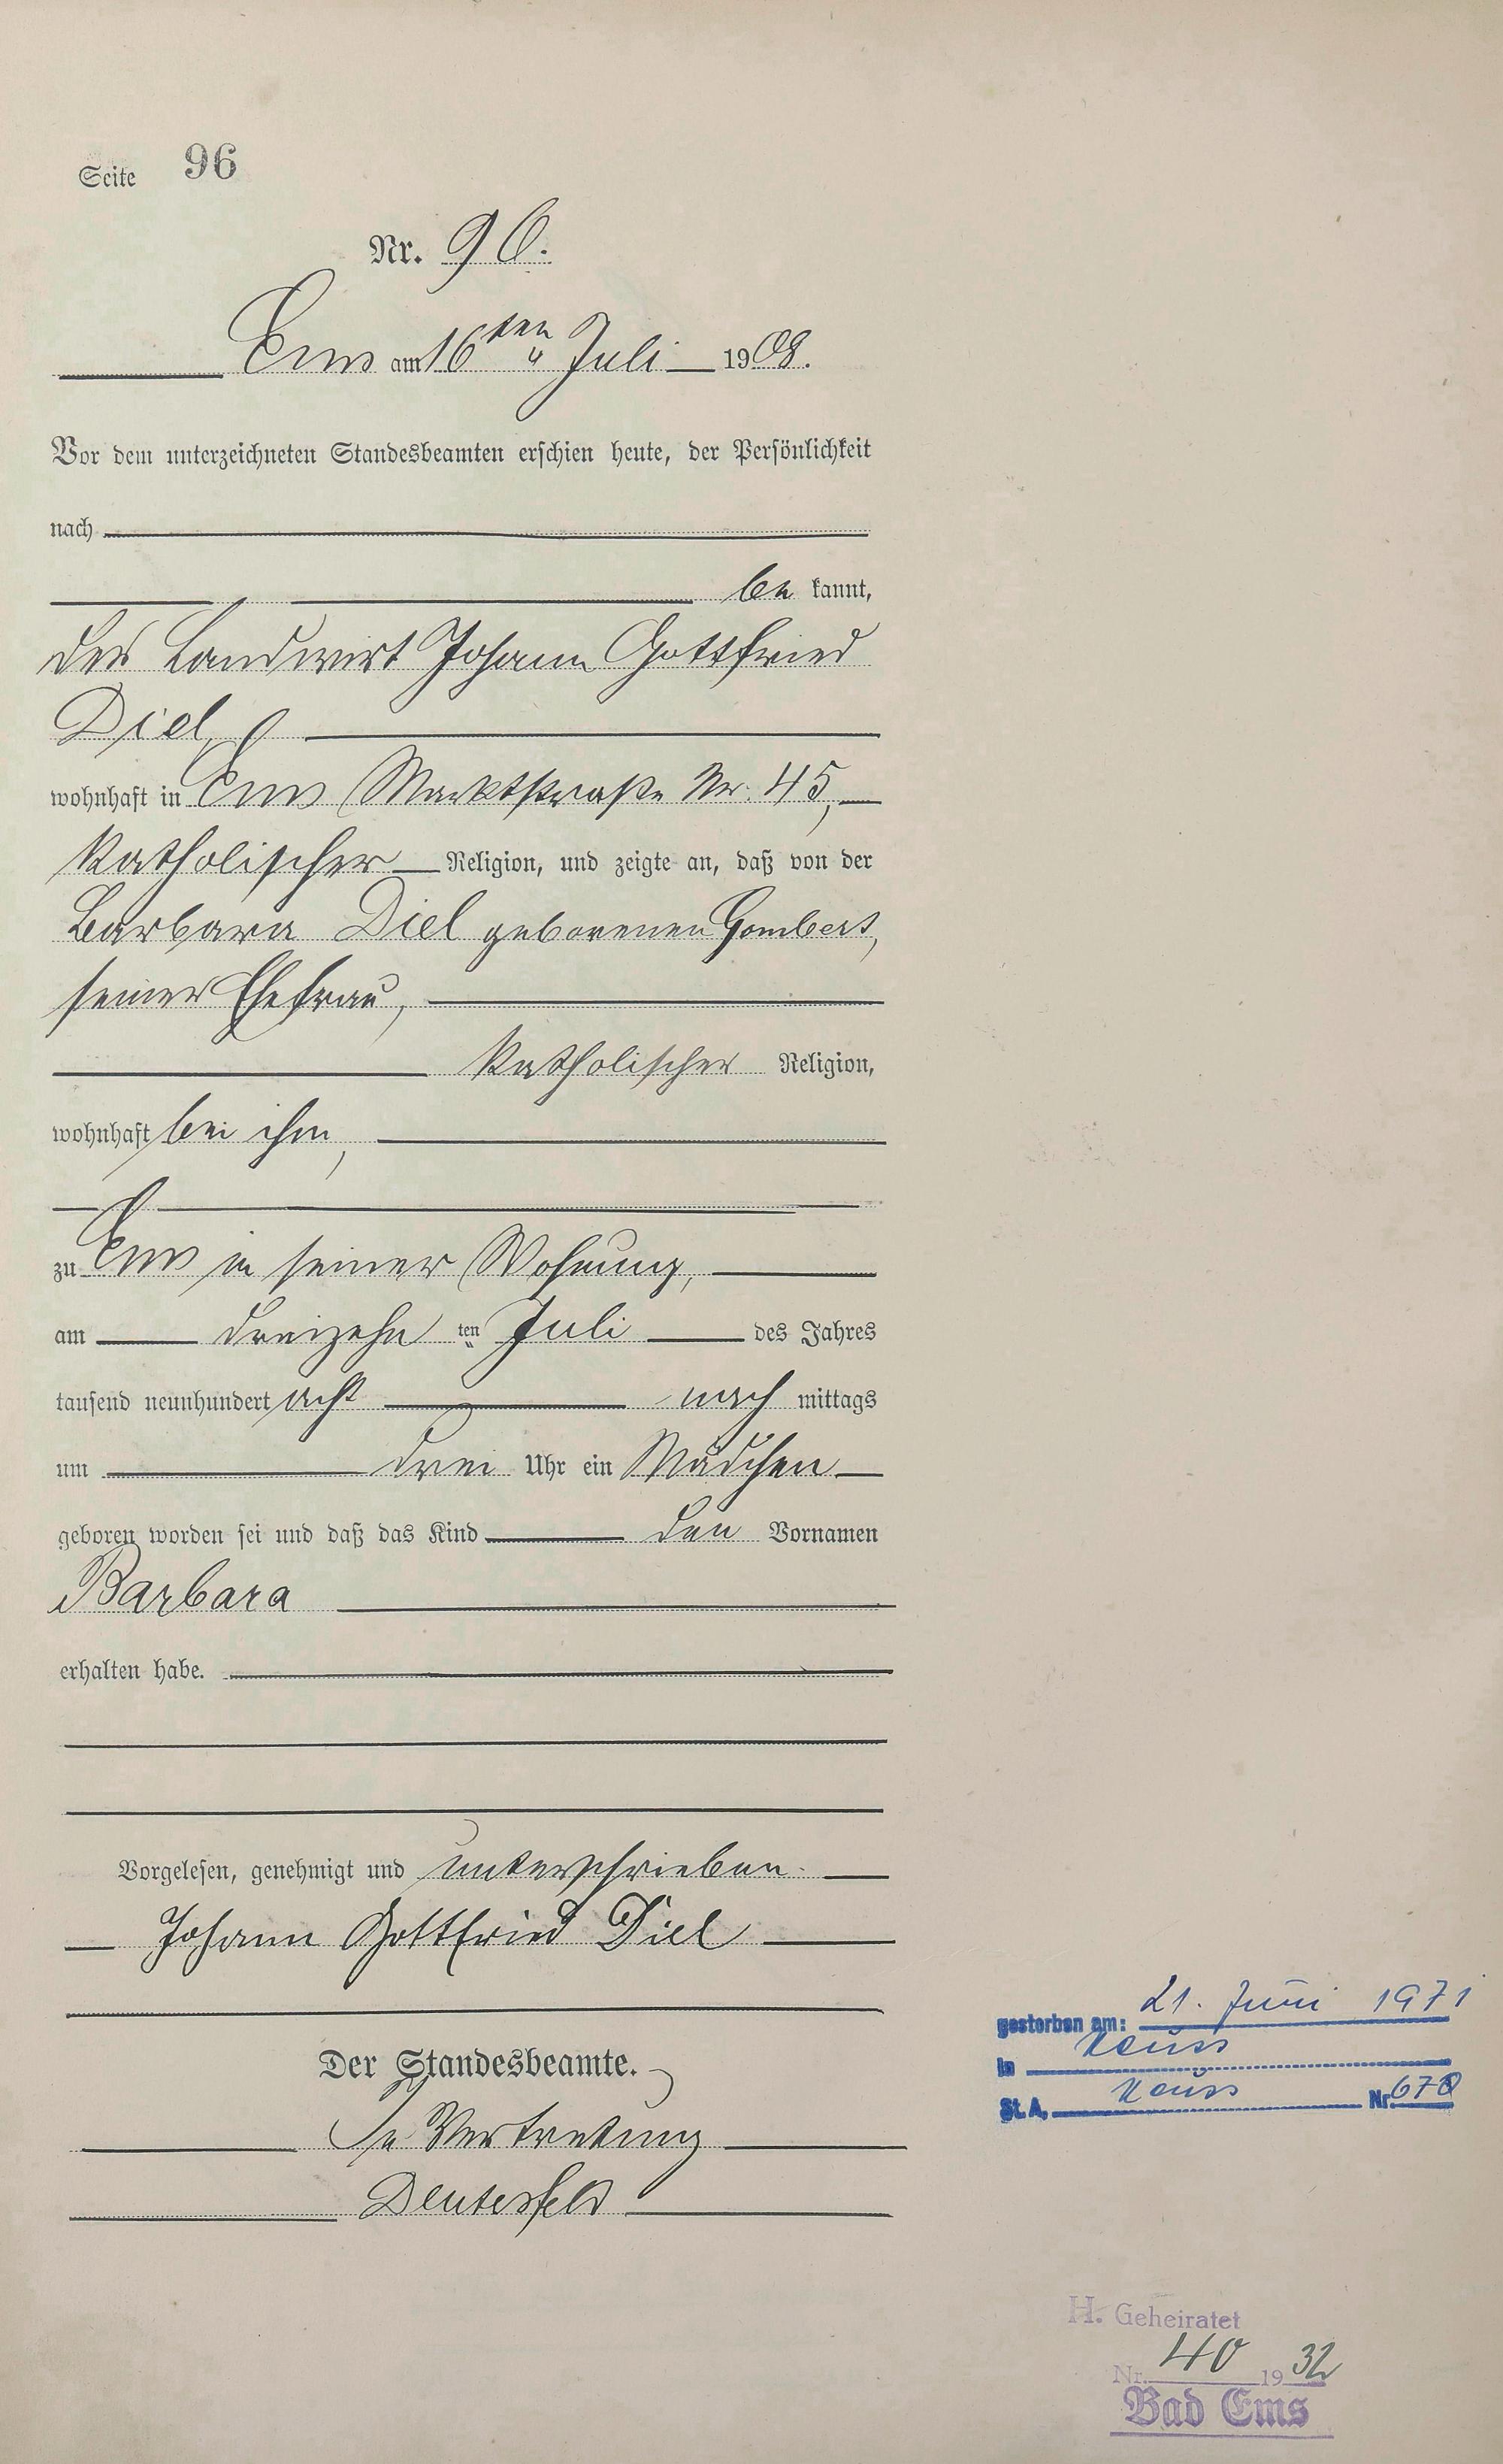 Seite 96
Nr. 90.
Ems am 16ten Juli 1908.
Vor dem unterzeichneten Standesbeamten erschien heute, der Persönlichkeit
nach
be kannt,
der Landwirt Johann Gottfried
Diel,
wohnhaft in Ems Marktstraße Nr. 45,
katholischer Religion, und zeigte an, daß von der
Barbara Diel geborenen Gombert,
seiner Ehefrau,
katholischer Religion,
wohnhaft bei ihm,
zu Ems in seiner Wohnung,
am dreizehn ten Juli des Jahres
tausend neunhundert acht nach mittags
um drei Uhr ein Mädchen
geboren worden sei und daß das Kind den Vornamen
Barbara
erhalten habe.
Vorgelesen, genehmigt und unterschrieben.
Johann Gottfried Diel
Der Standesbeamte.
In Vertretung
Deutesfeld
gestorben am: 21. Juni 1971
in Neuss
St. A. Neuss Nr. 670
H. Geheiratet
Nr. 40 1932
Bad Ems